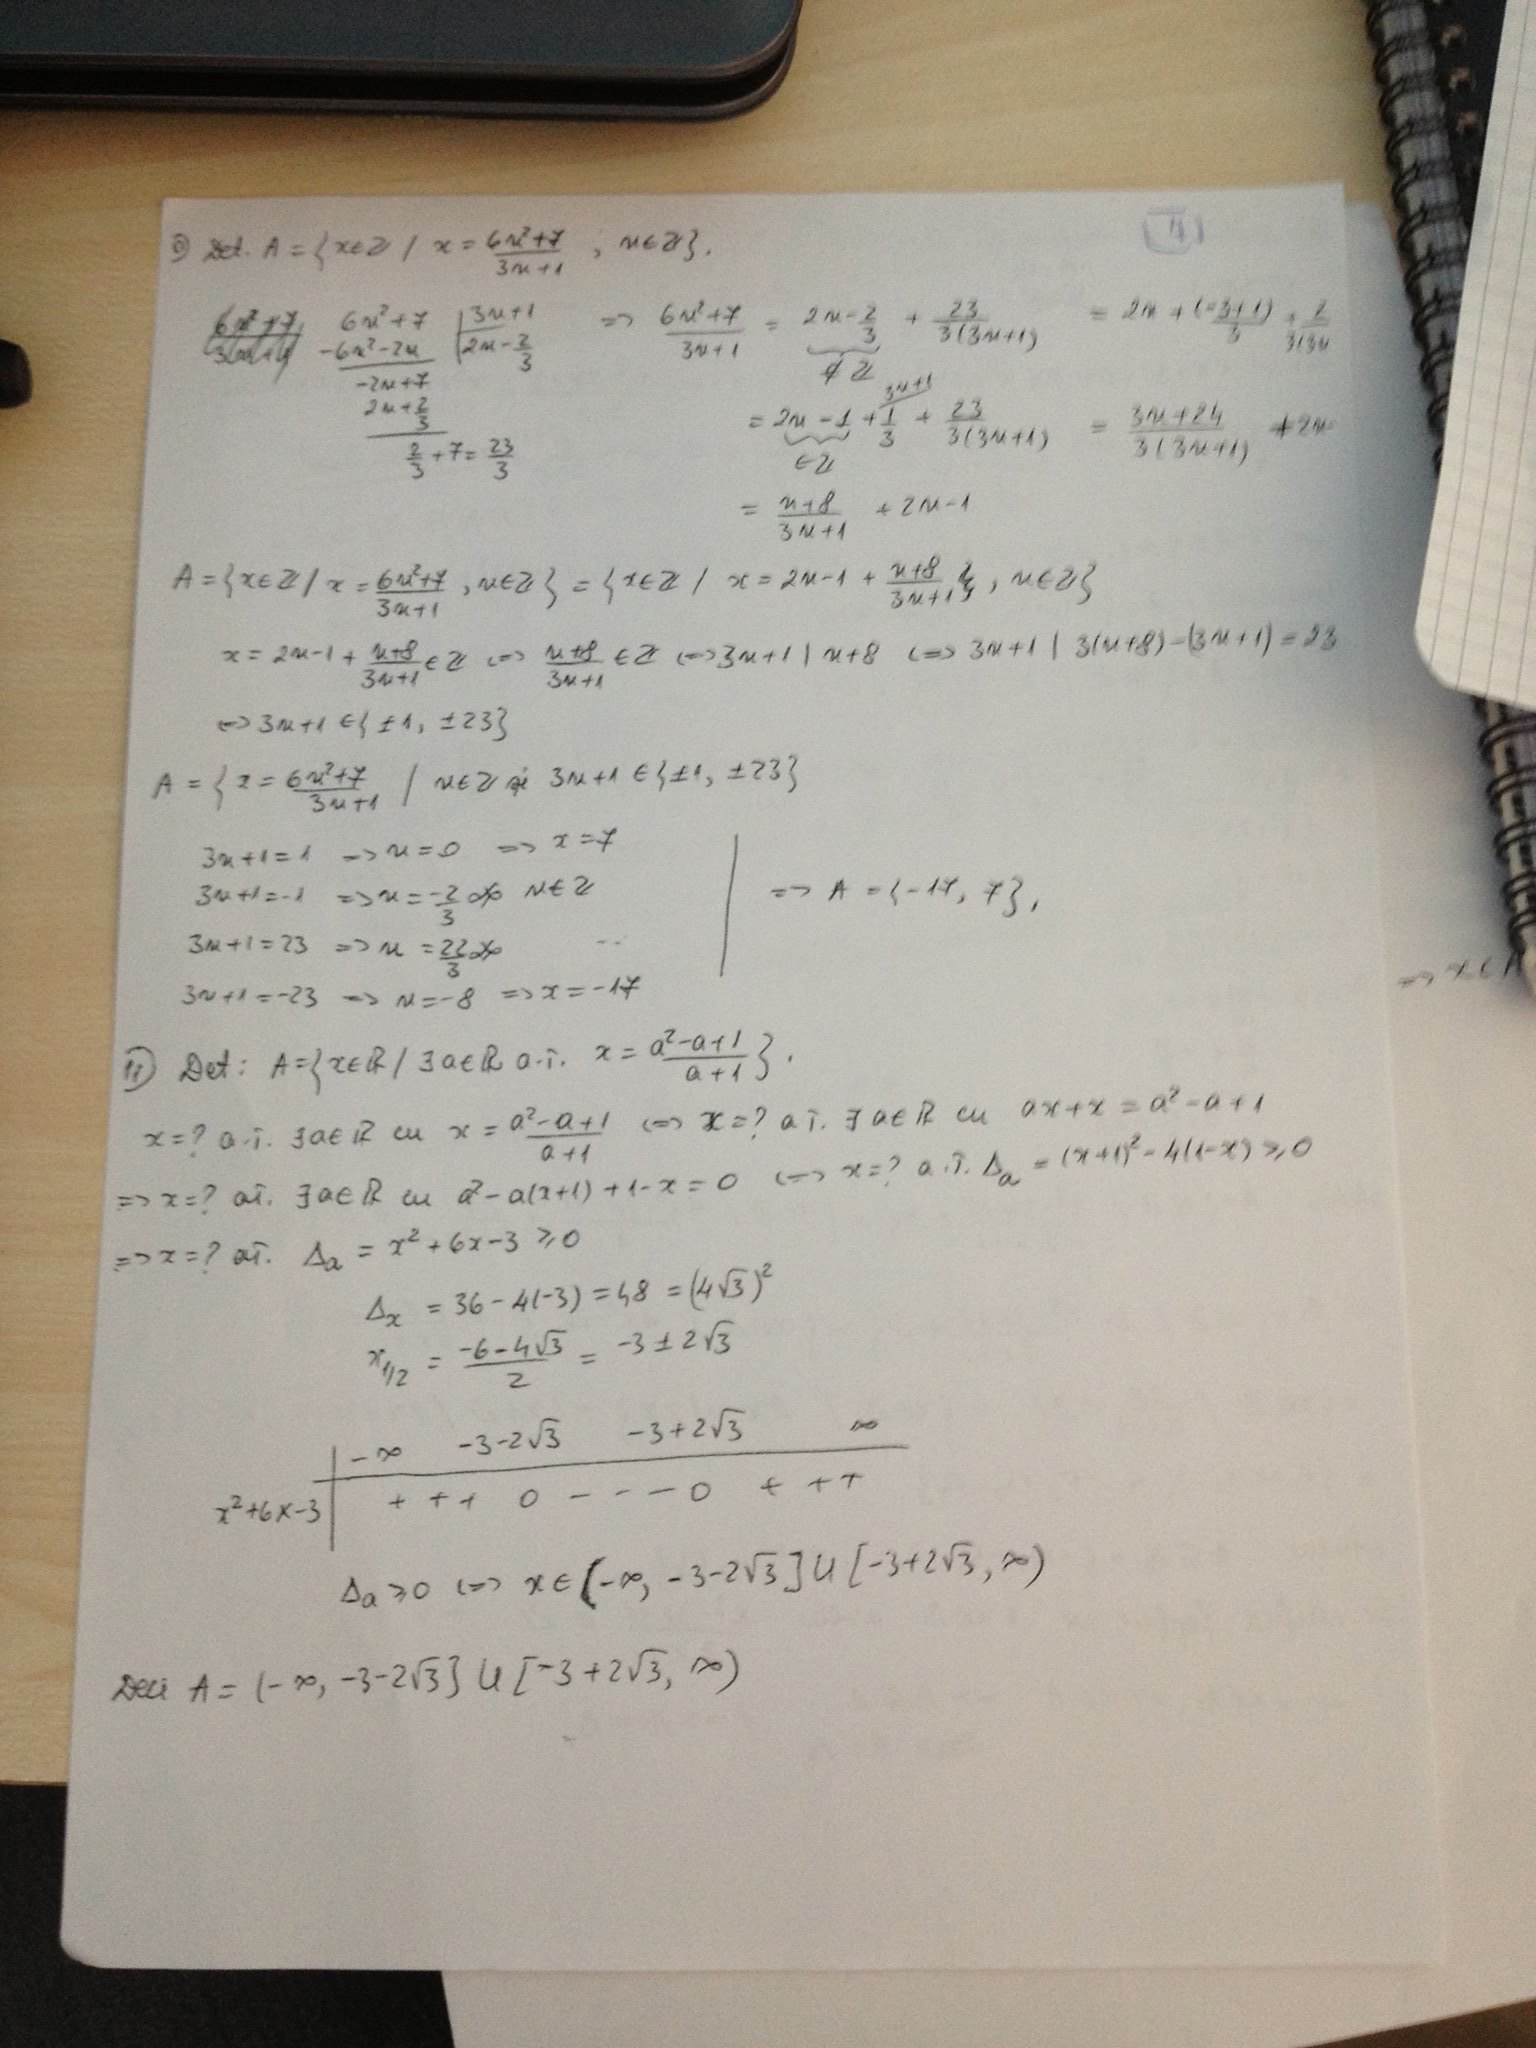 i) Det. A = {x∈ℤ / x = (6n²+7)/(3n+1) ; n∈ℤ}.
6n²+7 | 3n+1
-6n²-2n | 2n - 2/3
-2n+7
2n + 2/3
2/3 + 7 = 23/3
=> (6n²+7)/(3n+1) = 2n - 2/3 + 23/(3(3n+1)) = 2n + (-3+1)/3 +
∉ ℤ
= 2n - 1 + 1/3 + 23/(3(3n+1)) = (3n+24)/(3(3n+1)) + 2n
3n+1
∈ℤ
= (n+8)/(3n+1) + 2n-1
A = {x∈ℤ / x = (6n²+7)/(3n+1), n∈ℤ} = {x∈ℤ / x = 2n-1 + (n+8)/(3n+1), n∈ℤ}
x = 2n-1 + (n+8)/(3n+1) ∈ ℤ <=> (n+8)/(3n+1) ∈ ℤ <=> 3n+1 | n+8 <=> 3n+1 | 3(n+8)-(3n+1) = 23
<=> 3n+1 ∈ {±1, ±23}
A = { x = (6n²+7)/(3n+1) / n∈ℤ și 3n+1 ∈ {±1, ±23}
3n+1 = 1 => n = 0 => x = 7
3n+1 = -1 => n = -2/3 ✗ n∈ℤ
3n+1 = 23 => n = 22/3 ✗ ..
3n+1 = -23 => n = -8 => x = -17
=> A = {-17, 7},
=> x∈A
ii) Det: A = {x∈ℝ / ∃a∈ℝ a.î. x = (a²-a+1)/(a+1)}.
x=? a.î. ∃a∈ℝ cu x = (a²-a+1)/(a+1) <=> x=? a.î. ∃a∈ℝ cu ax+x = a²-a+1
=> x=? aî. ∃a∈ℝ cu a²-a(x+1)+1-x = 0 <=> x=? a.î. Δₐ = (x+1)²-4(1-x) ≥ 0
=> x=? aî. Δₐ = x²+6x-3 ≥ 0
Δₓ = 36-4(-3) = 48 = (4√3)²
x₁/₂ = (-6-4√3)/2 = -3±2√3
-∞ -3-2√3 -3+2√3 ∞
x²+6x-3 | + + + 0 - - - 0 + + +
Δₐ ≥ 0 <=> x∈(-∞, -3-2√3] ∪ [-3+2√3, ∞)
Deci A = (-∞, -3-2√3] ∪ [-3+2√3, ∞)